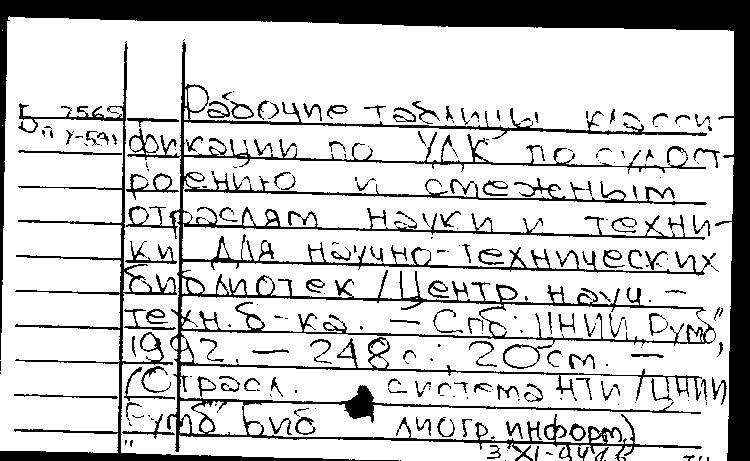 Б 7565
Бп У-591
Рабочие таблицы класси-
фикации по УДК по судост-
роению и смежным
отраслям науки и техни-
ки для научно-технических
библиотек /Центр. науч.-
техн. б-ка. – Спб: ЦНИИ „Румб",
1992. – 248 с.; 20 см. –
(Отрасл. система НТИ /ЦНИИ
„Румб". Библиогр. информ.)